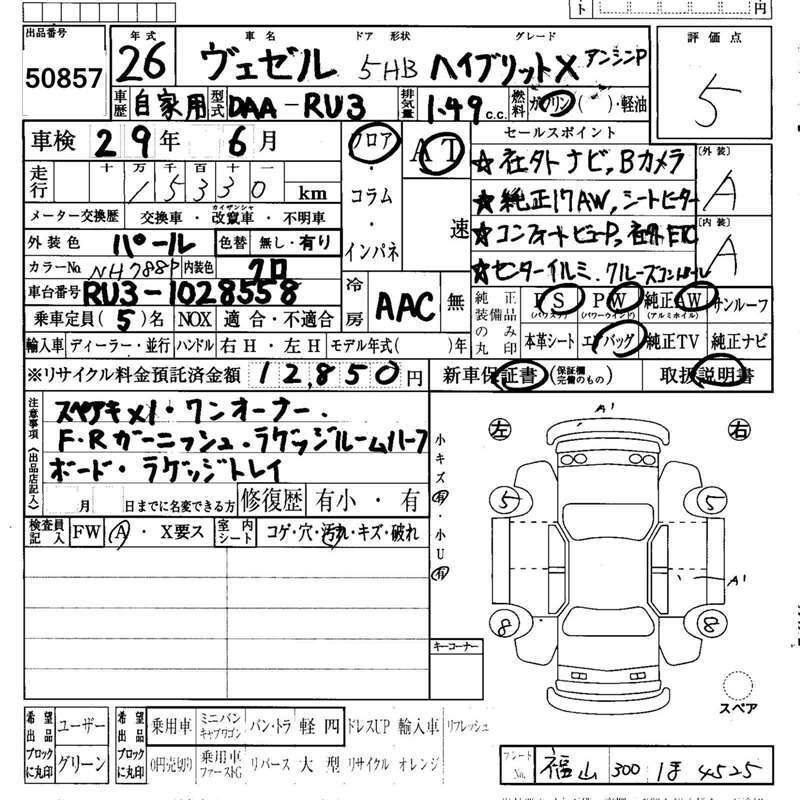 円
出品番号 年式 車名 ドア 形状 グレード 評価点
50857 26 ヴェゼル 5HB ハイブリットX アンシンP 5
車歴 自家用 型式 DAA-RU3 排気量 1.49 c.c. 燃料 ガソリン( )・軽油
車検 29年 6月 フロア・コラム・インパネ AT 速
セールスポイント
☆社外ナビ,Bカメラ
☆純正17AW,シートヒーター
☆コンフォートビューP,社外ETC
☆センターイルミ.クルーズコントロール
[外装] A
[内装] A
走行 十万千百十 15330 km
メーター交換歴 交換車・改竄車・不明車
カイザンシャ
外装色 パール 色替 無し・有り
カラーNo. NH788P 内装色 クロ
車台番号 RU3-1028558
冷房 AAC 無
乗車定員(5)名 NOX 適合・不適合
純正装備品の み丸印 PS(パワステ) PW(パワーウインド) 純正AW(アルミホイル) サンルーフ
本革シート エアバッグ 純正TV 純正ナビ
輸入車 ディーラー・並行 ハンドル 右H・左H モデル年式( )年
※リサイクル料金預託済金額 12,850円 新車保証書(保証欄完備のもの) 取扱説明書
注意事項(出品店記入)
スペアキーx1・ワンオーナー.
F・Rガーニッシュ・ラゲッジルームハーフ
ボード・ラゲッジトレイ
月 日までに名変できる方 修復歴 有小・有
検査員記入 FW A・X要ス 室内シート コゲ・穴・汚れ・キズ・破れ
小キズ有・小U有
キーコーナー
左 右
A1
5 5
A1
8 8
スペア
希望出品ブロックに丸印 ユーザー グリーン
希望出品ブロックに丸印 乗用車 ミニバンキャブワゴン バン・トラ 軽四 ドレスUP 輸入車 リフレッシュ
0円売切り 乗用車ファーストG リバース 大型 リサイクル オレンジ
プレートNo. 福山 300 ほ 4525